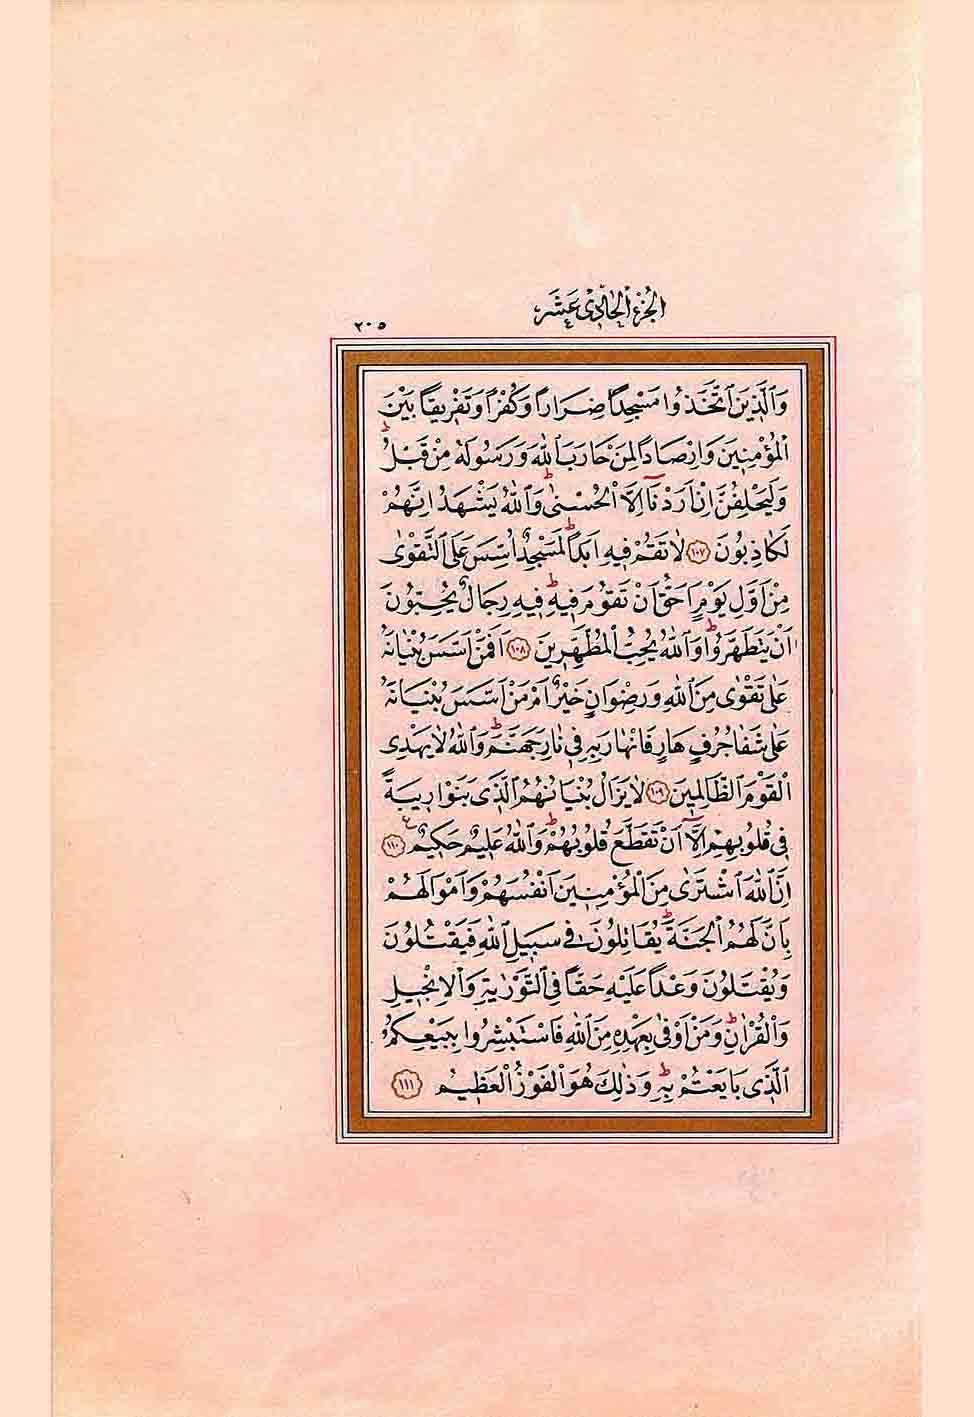 الجزء الحادى عشر
٢٠٥
وَالَّذِينَ اتَّخَذُوا مَسْجِدًا ضِرَارًا وَكُفْرًا وَتَفْرِيقًا بَيْنَ
الْمُؤْمِنِينَ وَاِرْصَادًا لِمَنْ حَارَبَ اللّٰهَ وَرَسُولَهُ مِنْ قَبْلُ
وَلَيَحْلِفُنَّ اِنْ اَرَدْنَٓا اِلَّا الْحُسْنٰى وَاللّٰهُ يَشْهَدُ اِنَّهُمْ
لَكَاذِبُونَ ١٠٧ لَا تَقُمْ فِيهِ اَبَدًا لَمَسْجِدٌ اُسِّسَ عَلَى التَّقْوٰى
مِنْ اَوَّلِ يَوْمٍ اَحَقُّ اَنْ تَقُومَ فِيهِ فِيهِ رِجَالٌ يُحِبُّونَ
اَنْ يَتَطَهَّرُوا وَاللّٰهُ يُحِبُّ الْمُطَّهِّرِينَ ١٠٨ اَفَمَنْ اَسَّسَ بُنْيَانَهُ
عَلٰى تَقْوٰى مِنَ اللّٰهِ وَرِضْوَانٍ خَيْرٌ اَمْ مَنْ اَسَّسَ بُنْيَانَهُ
عَلٰى شَفَا جُرُفٍ هَارٍ فَانْهَارَ بِهِ فِى نَارِ جَهَنَّمَ وَاللّٰهُ لَا يَهْدِى
الْقَوْمَ الظَّالِمِينَ ١٠٩ لَا يَزَالُ بُنْيَانُهُمُ الَّذِى بَنَوْا رِيبَةً
فِى قُلُوبِهِمْ اِلَّٓا اَنْ تَقَطَّعَ قُلُوبُهُمْ وَاللّٰهُ عَلِيمٌ حَكِيمٌ ١١٠
اِنَّ اللّٰهَ اشْتَرٰى مِنَ الْمُؤْمِنِينَ اَنْفُسَهُمْ وَاَمْوَالَهُمْ
بِاَنَّ لَهُمُ الْجَنَّةَ يُقَاتِلُونَ فِى سَبِيلِ اللّٰهِ فَيَقْتُلُونَ
وَيُقْتَلُونَ وَعْدًا عَلَيْهِ حَقًّا فِى التَّوْرٰيةِ وَالْاِنْجِيلِ
وَالْقُرْاٰنِ وَمَنْ اَوْفٰى بِعَهْدِهِ مِنَ اللّٰهِ فَاسْتَبْشِرُوا بِبَيْعِكُمُ
الَّذِى بَايَعْتُمْ بِهِ وَذٰلِكَ هُوَ الْفَوْزُ الْعَظِيمُ ١١١